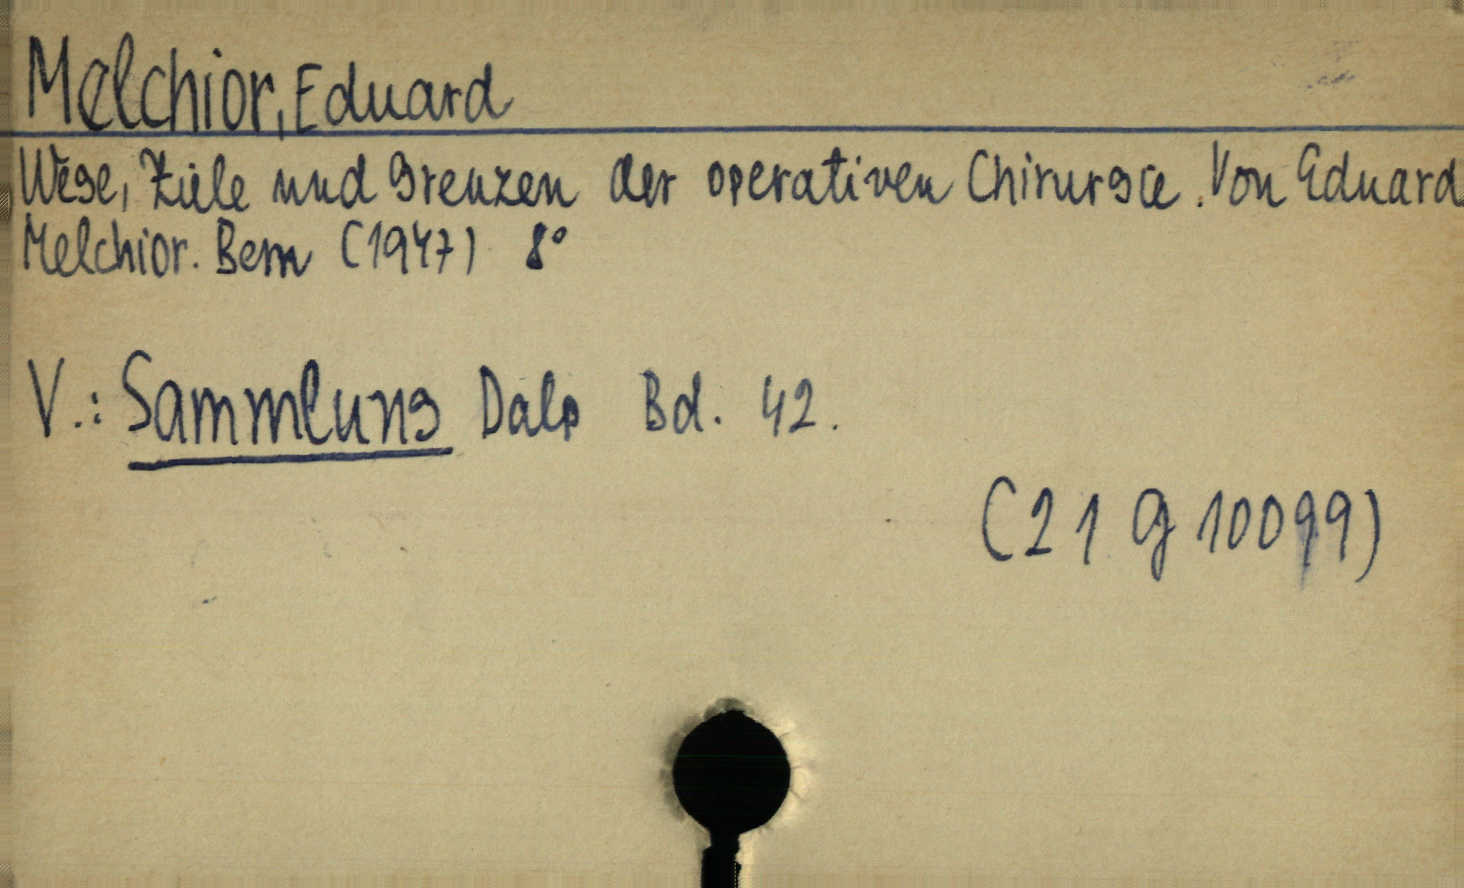 Melchior, Eduard
Wege, Ziele und Grenzen der operativen Chirurgie. Von Eduard
Melchior. Bern (1947) 8°
V.: Sammlung Dalp Bd. 42.
(21 g 10099)